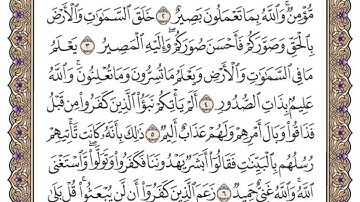 مُّؤْمِنٌۚ وَٱللَّهُ بِمَا تَعْمَلُونَ بَصِيرٌ ٢ خَلَقَ ٱلسَّمَٰوَٰتِ وَٱلْأَرْضَ
بِٱلْحَقِّ وَصَوَّرَكُمْ فَأَحْسَنَ صُوَرَكُمْۖ وَإِلَيْهِ ٱلْمَصِيرُ ٣ يَعْلَمُ
مَا فِى ٱلسَّمَٰوَٰتِ وَٱلْأَرْضِ وَيَعْلَمُ مَا تُسِرُّونَ وَمَا تُعْلِنُونَۚ وَٱللَّهُ
عَلِيمٌۢ بِذَاتِ ٱلصُّدُورِ ٤ أَلَمْ يَأْتِكُمْ نَبَؤُا۟ ٱلَّذِينَ كَفَرُوا۟ مِن قَبْلُ
فَذَاقُوا۟ وَبَالَ أَمْرِهِمْ وَلَهُمْ عَذَابٌ أَلِيمٌ ٥ ذَٰلِكَ بِأَنَّهُۥ كَانَت تَّأْتِيهِمْ
رُسُلُهُم بِٱلْبَيِّنَٰتِ فَقَالُوٓا۟ أَبَشَرٌ يَهْدُونَنَا فَكَفَرُوا۟ وَتَوَلَّوا۟ۚ وَّٱسْتَغْنَى
ٱللَّهُۚ وَٱللَّهُ غَنِىٌّ حَمِيدٌ ٦ زَعَمَ ٱلَّذِينَ كَفَرُوٓا۟ أَن لَّن يُبْعَثُوا۟ۚ قُلْ بَلَىٰ